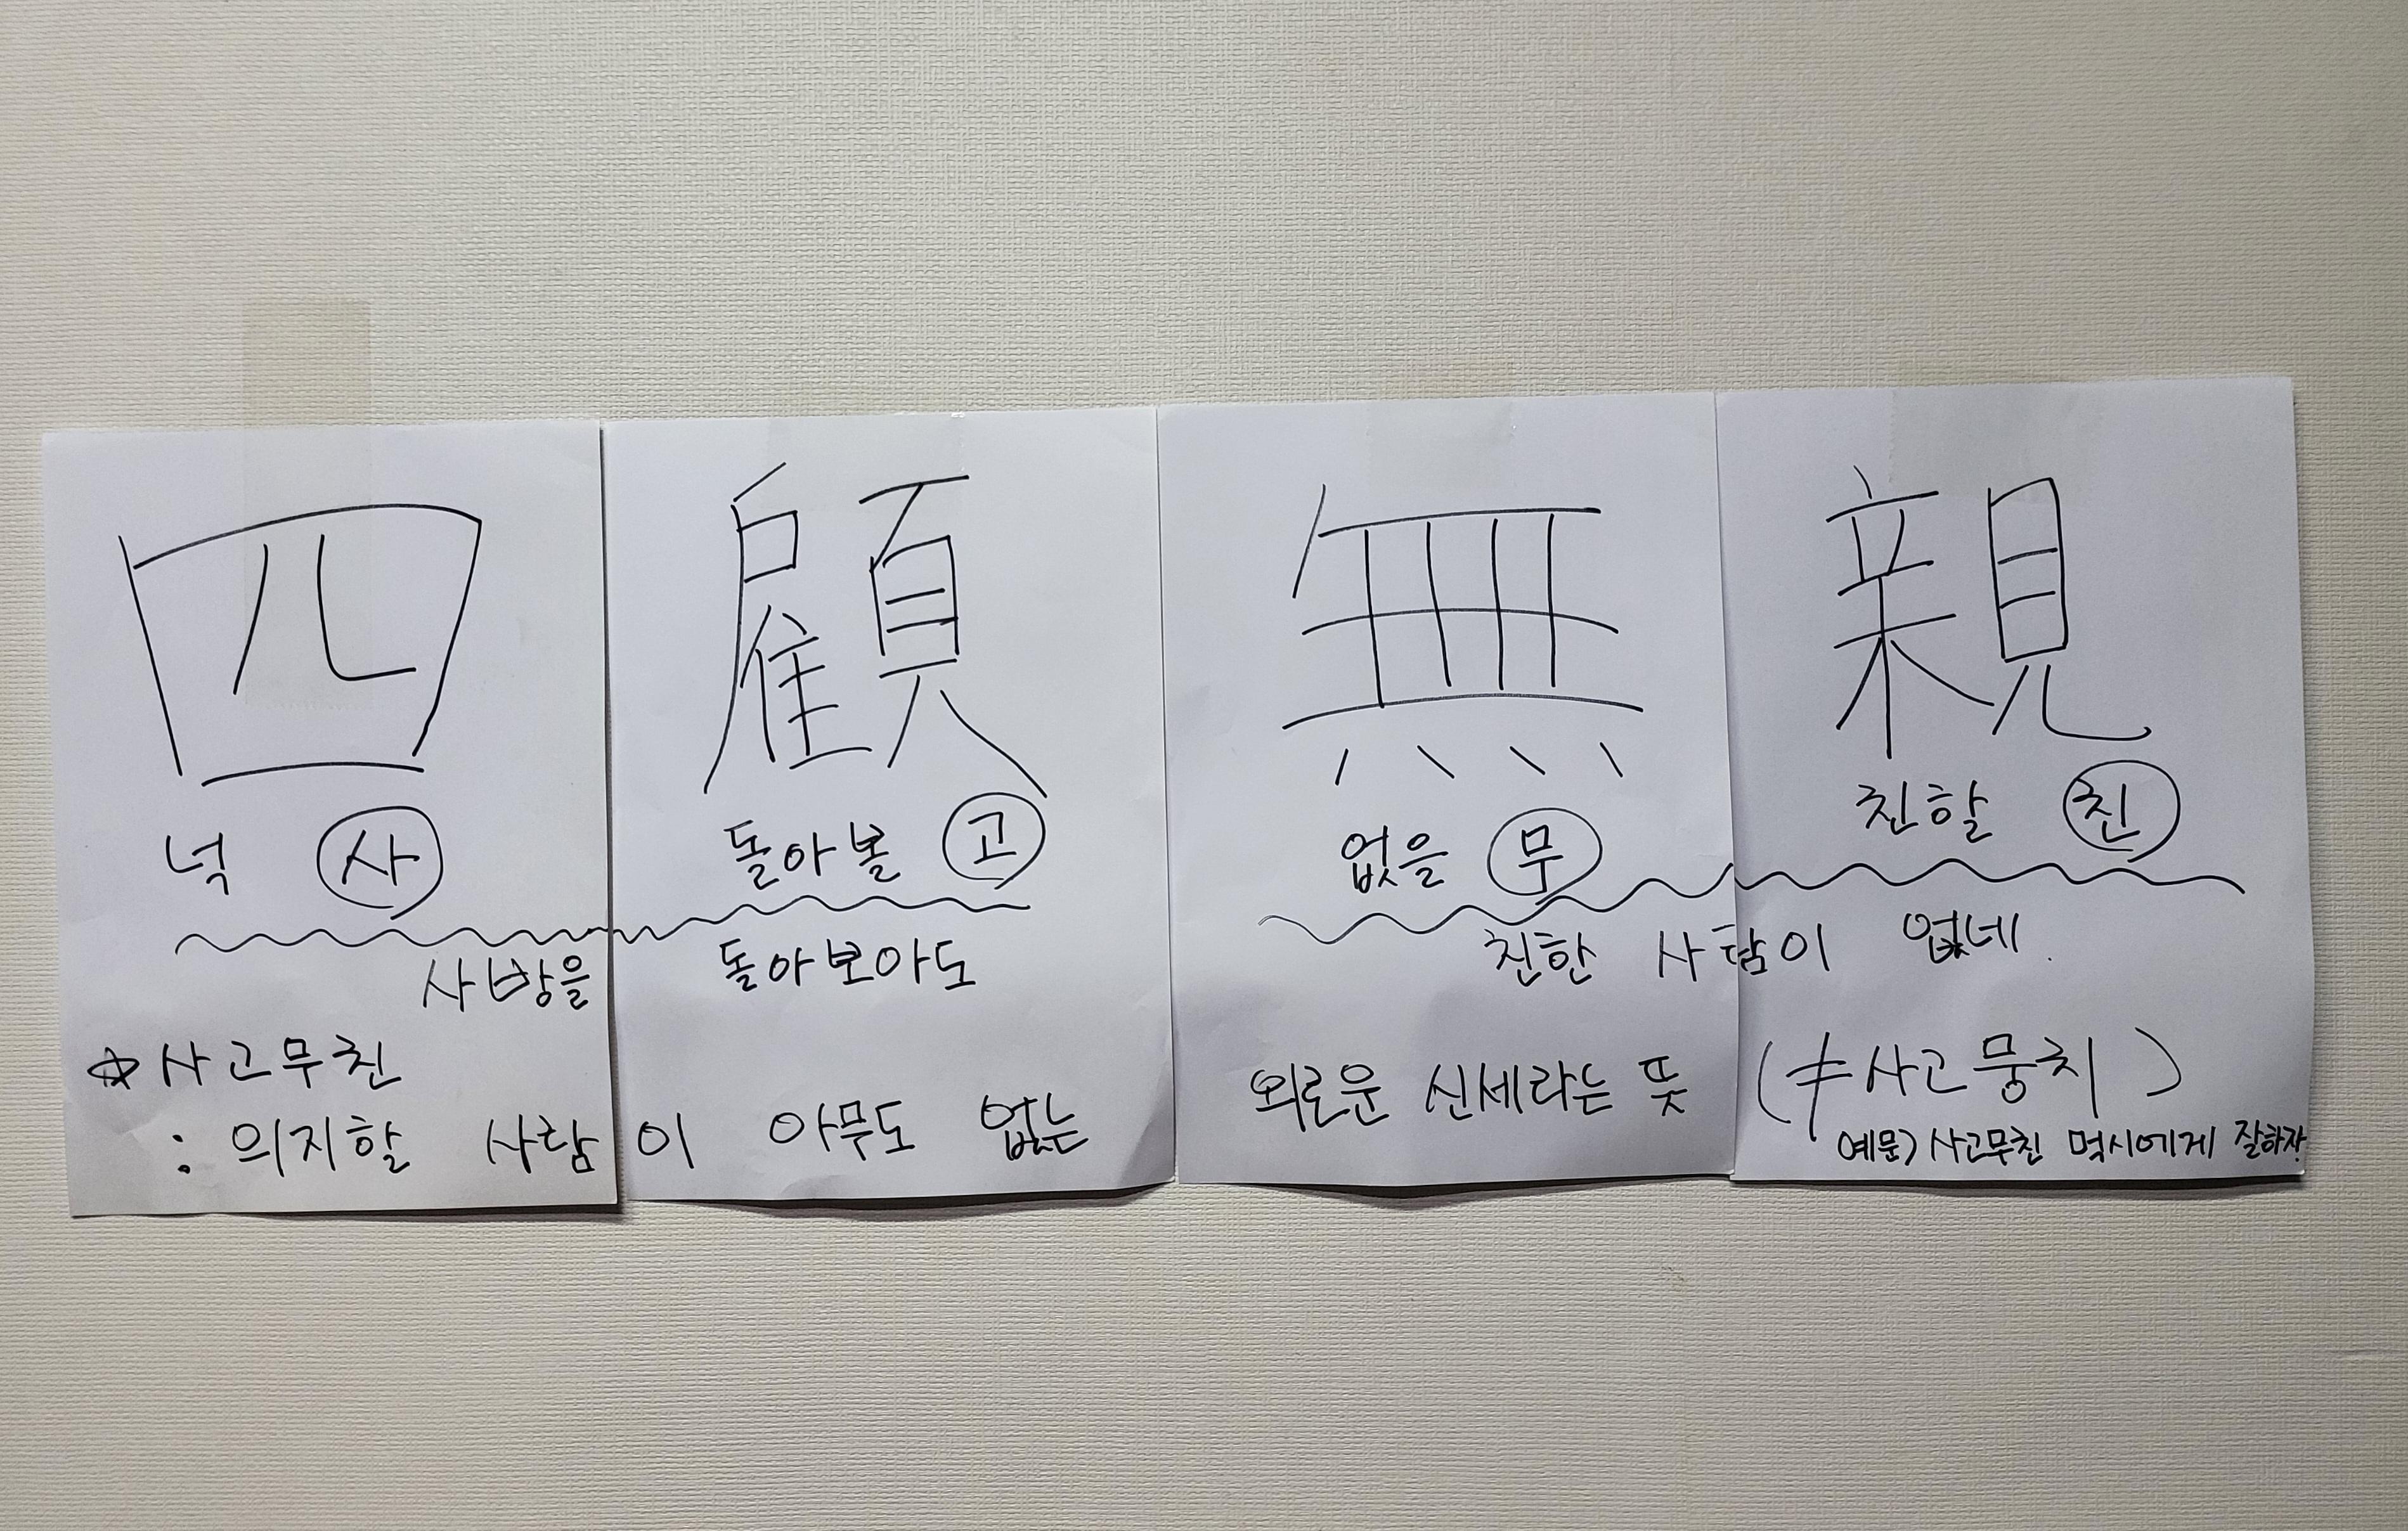 四 顧 無 親
넉 사 돌아볼 고 없을 무 친할 친
사방을 돌아보아도 친한 사람이 없네.
☆사고무친
: 의지할 사람이 아무도 없는 외로운 신세라는 뜻 (≠사고뭉치)
예문) 사고무친 먹시에게 잘하자.